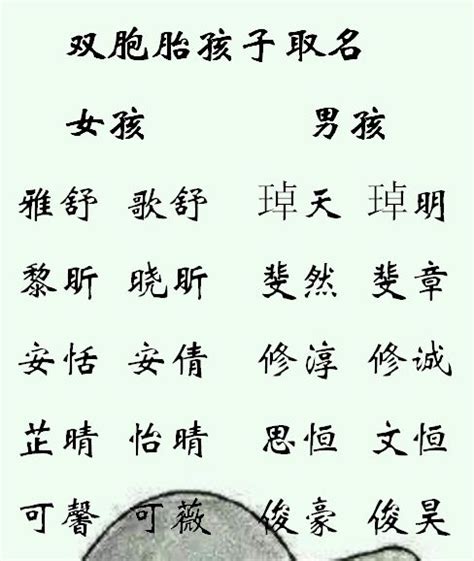 双胞胎孩子取名
女孩 男孩
雅舒 歌舒 琸天 琸明
黎昕 晓昕 斐然 斐章
安恬 安倩 修淳 修诚
芷晴 怡晴 思恒 文恒
可馨 可薇 俊豪 俊昊